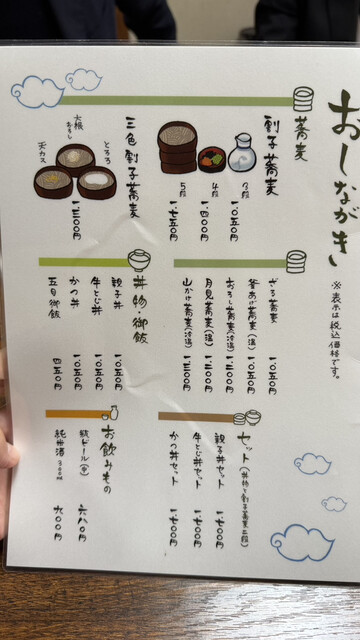 おしながき
※表示は税込価格です。
蕎麦
割子蕎麦
3段 一、〇五〇円
4段 一、四〇〇円
5段 一、七五〇円
三色割子蕎麦
とろろ
大根おろし
天カス
一、三〇〇円
ざる蕎麦 一、〇五〇円
釜あげ蕎麦(温) 一、〇五〇円
おろし蕎麦(冷温) 一、二五〇円
月見蕎麦(温) 一、二〇〇円
山かけ蕎麦(冷温) 一、三〇〇円
丼物・御飯
親子丼 一、〇五〇円
牛とじ丼 一、〇五〇円
かつ丼 一、〇五〇円
五目御飯 四五〇円
セット(丼物と割子蕎麦二段)
親子丼セット 一、七〇〇円
牛とじ丼セット 一、七〇〇円
かつ丼セット 一、七〇〇円
お飲みもの
瓶ビール(中) 六八〇円
純米酒300ml 六〇〇円